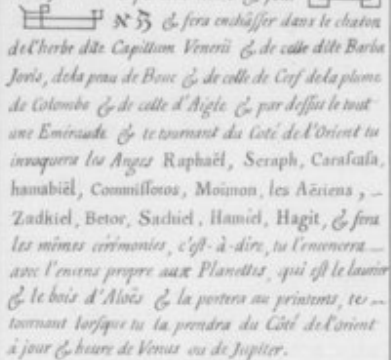 & fera enchâsser dans le chaton
de l'herbe dite Capillum Venerii & de celle dite Barba
Jovis, de la peau de Bouc & de celle de Cerf de la plume
de Colombe & de celle d'Aigle & par dessus le tout
une Emeraude & te tournant du Coté de l'Orient tu
invoquera les Anges Raphaël, Seraph, Carascasa,
hamabiël, Commissoros, Moimon, les Aëriens,
Zadkiel, Betor, Sachiel, Hamiel, Hagit, & fera
les mêmes cérémonies, c'est-à-dire, tu l'encencera
avec l'encens propre aux Planettes, qui est le laurier
& le bois d'Aloës & la portera au printems, te
tournant lorsque tu la prendra du Côté de l'orient
à jour & heure de Venus ou de Jupiter.